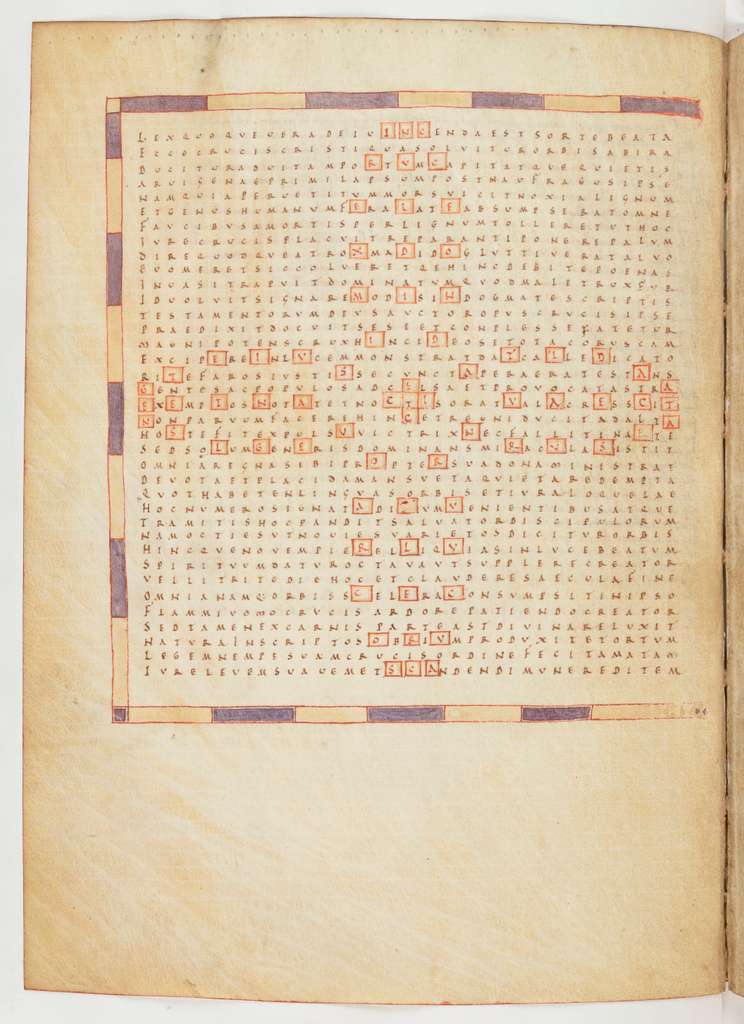 LEXQVOQVEVERADEIVINCENDAESTSORTEBEATA
ECCOCRVCISCRISTIQVASOLVITVRORBISABIRA
DVCITVRADVITAMPORTVMCAPITATQVEQVIETIS
ARVIGENAEPRIMILAPSVMPOSTNAVFRAGVSIPSE
NAMQVIAPERVETITVMMORSVICITNOXIALIGNVM
ETGENVSHVMANVMFERALATEABSVMPSERATOMNE
FAVCIBVSAMORTISPERLIGNVMTOLLERETVTHOC
IVRECRVCISPLACVITREPARANTIPONEREPALVM
DIREQVODQVEATROXMADIDOGLVTTIVERATALVO
EVOMERETSICCOLVERETQEHINCDEBITEPOENAS
INVASITRAPVITDOMINATVMQVODMALETRVXFVR
IDVOLVITSIGNAREMODISINDOGMATESCRIPTIS
TESTAMENTORVMDEVSAVCTOROPVSCRVCISIPSE
PRAEDIXITDOCVITSESEETCONPLESSEFATETVR
MAGNIPOTENSCRVXHINCIDEOSETOTACORVSCAM
EXCIPEREINLVCEMMONSTRATDATCALLEDICATO
RITEFAROSIVSTISSECVNCTAPERAERATESTANS
GENTESACPOPVLOSADCELSAETPROVOCATASTRA
EXEMPTOSNOTATETNOCTISORATVALACRESCITA
NONPARVMFACEREHINCETREGNIDVCITADALTA
HOSTEFITEXPVLSOVICTRIXNECFALLITINARTE
SEDSOLVMGENERISDOMINANSMIRACVLASISTIT
OMNIAREGNASIBIPROPTERSVADONAMINISTRAT
DEVOTAETPLACIDAMANSVETAQVIETAREDEMPTA
QVOTHABETENLINGVASORBISETIVRALOQVELAE
HOCNVMEROSIGNATADIZVMVENIENTIBVSATQVE
TRAMITISHOCPANDITSALVATORDISCIPVLORVM
NAMOCTIESVTNOVIESVARIETOSDICITVRORBIS
HINCQVENOVEMPIERELIQVIASINLVCEBEATVM
SPIRITVMDATVROCTAVAVTSVPPLERECREATOR
VELLITRITEDIEHOCETCLAVDERESAECVLAFINE
OMNIANAMQORBISSCELERACONSVMPSITINIPSO
FLAMMIVOMOCRVCISARDOREPATIENDOCREATOR
SEDTAMENEXCARNISPARTEASTDIVINARELVXIT
NATVRAINSCRIPTOSOBRIVMPRODVXITETORTVM
LEGEMNEMPESVAMCRVCISORDINEFECITAMATAM
IVRELEVEMSVAVEMETSCANDENDIMVNEREDITEM